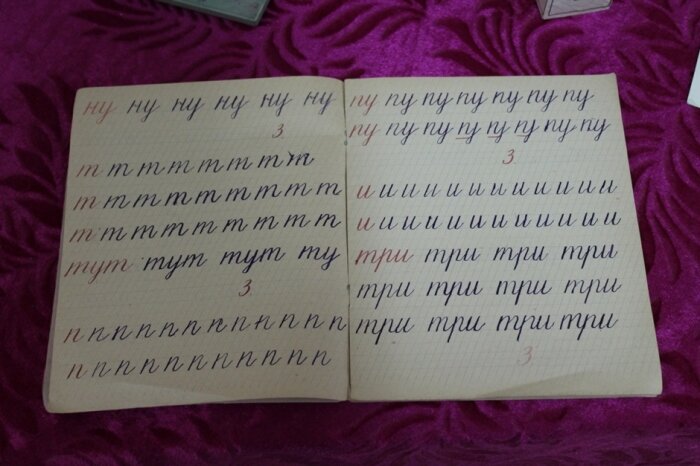 ну ну ну ну ну ну
3
т т т т т т т т
т т т т т т т т т
т т т т т т т т т
тут тут тут ту
3
п п п п п п п п п п п п
п п п п п п п п п п п
пу пу пу пу пу пу пу
пу пу пу пу пу пу пу пу
3
и и и и и и и и и и и и
и и и и и и и и и и и и
три три три три
три три три три
три три три три
3